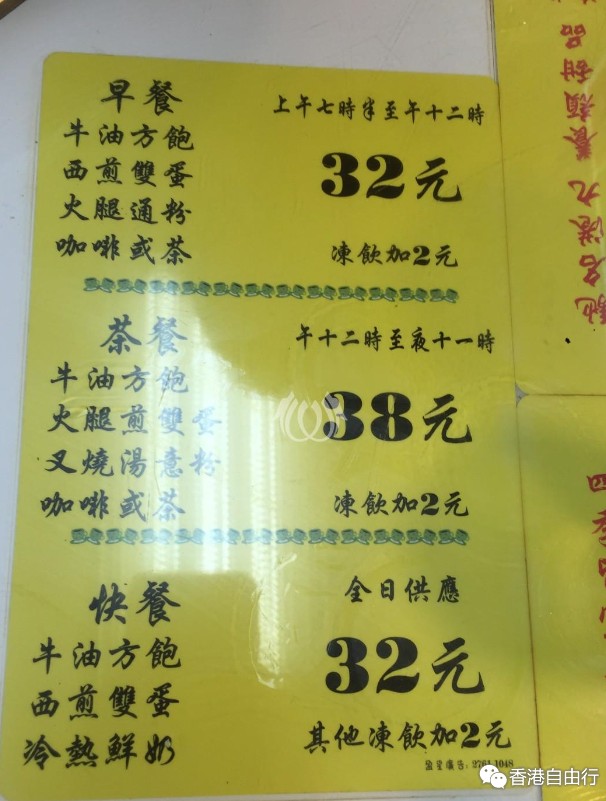 早餐
上午七時半至午十二時
牛油方飽
西煎雙蛋
火腿通粉
咖啡或茶
32元
凍飲加2元
茶餐
午十二時至夜十一時
牛油方飽
火腿煎雙蛋
叉燒湯意粉
咖啡或茶
38元
凍飲加2元
快餐
全日供應
牛油方飽
西煎雙蛋
冷熱鮮奶
32元
其他凍飲加2元
盈星廣告：2761 1048
馳名港九 養顏甜品
四季
香港自由行